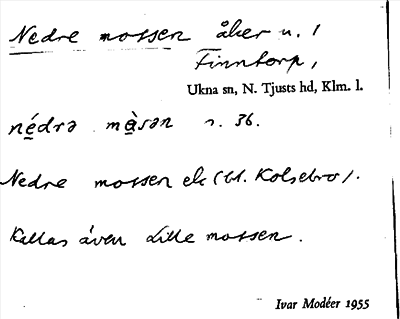 Nedre mossen åker u. /
Finntorp,
Ukna sn, N. Tjusts hd, Klm. l.
nédrə mə̀sən s. 36.
Nedre mossen ek (bl. Kolsebro).
Kallas även Lille mossen.
Ivar Modéer 1955